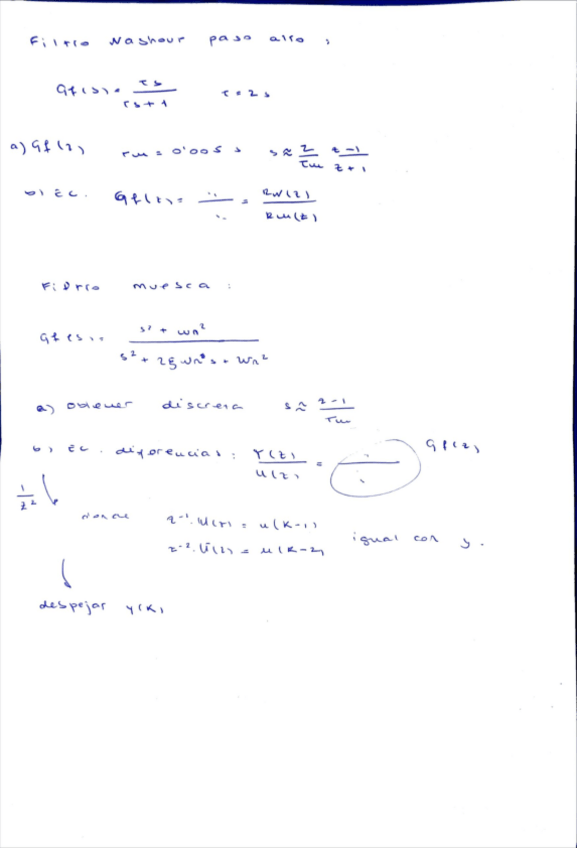 Filtro Washout paso alto :
Gf(s) = τs / (τs + 1) τ = 2 s
a) Gf(z) Tm = 0'005 s s ≈ 2/Tm (z-1)/(z+1)
b) Ec. Gf(z) = ∴ = RW(z) / Rm(z)
Filtro muesca :
Gf(s) = (s² + wn²) / (s² + 2ξwn s + wn²)
a) obtener discreta s ≈ (z-1)/Tm
b) Ec. diferencias : Y(z)/U(z) = Gf(z)
1/z²
Donde z⁻¹·U(z) = u(k-1)
z⁻²·U(z) = u(k-2) igual con y.
despejar y(k)